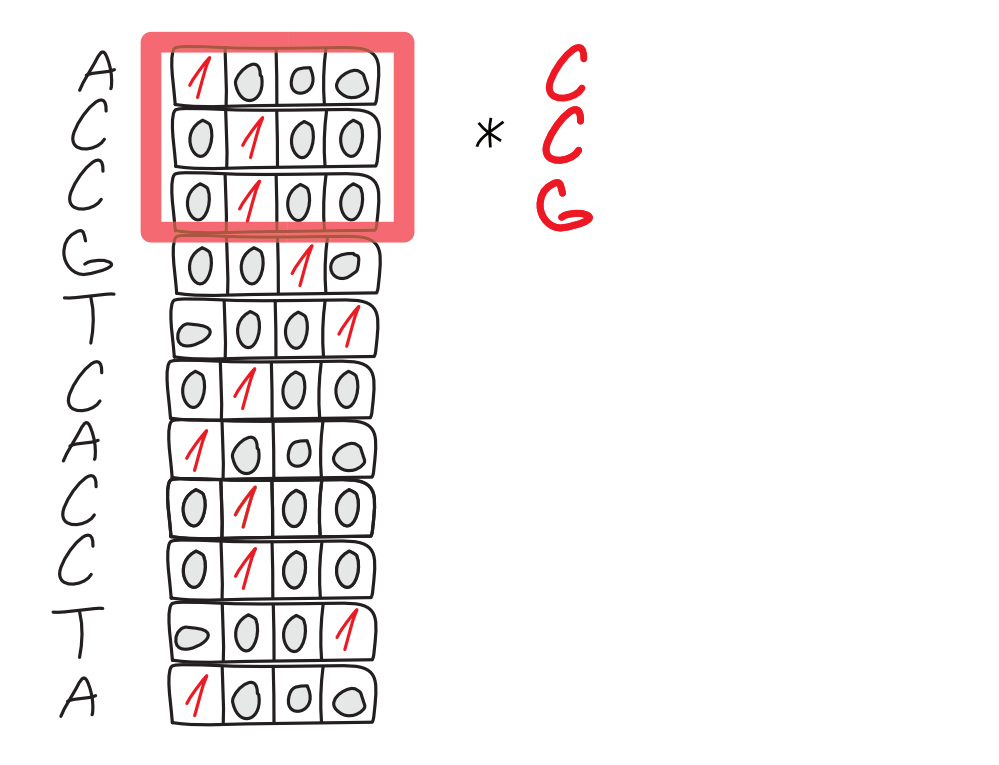 A 1 0 0 0 C
C 0 1 0 0 * C
C 0 1 0 0 G
G 0 0 1 0
T 0 0 0 1
C 0 1 0 0
A 1 0 0 0
C 0 1 0 0
C 0 1 0 0
T 0 0 0 1
A 1 0 0 0